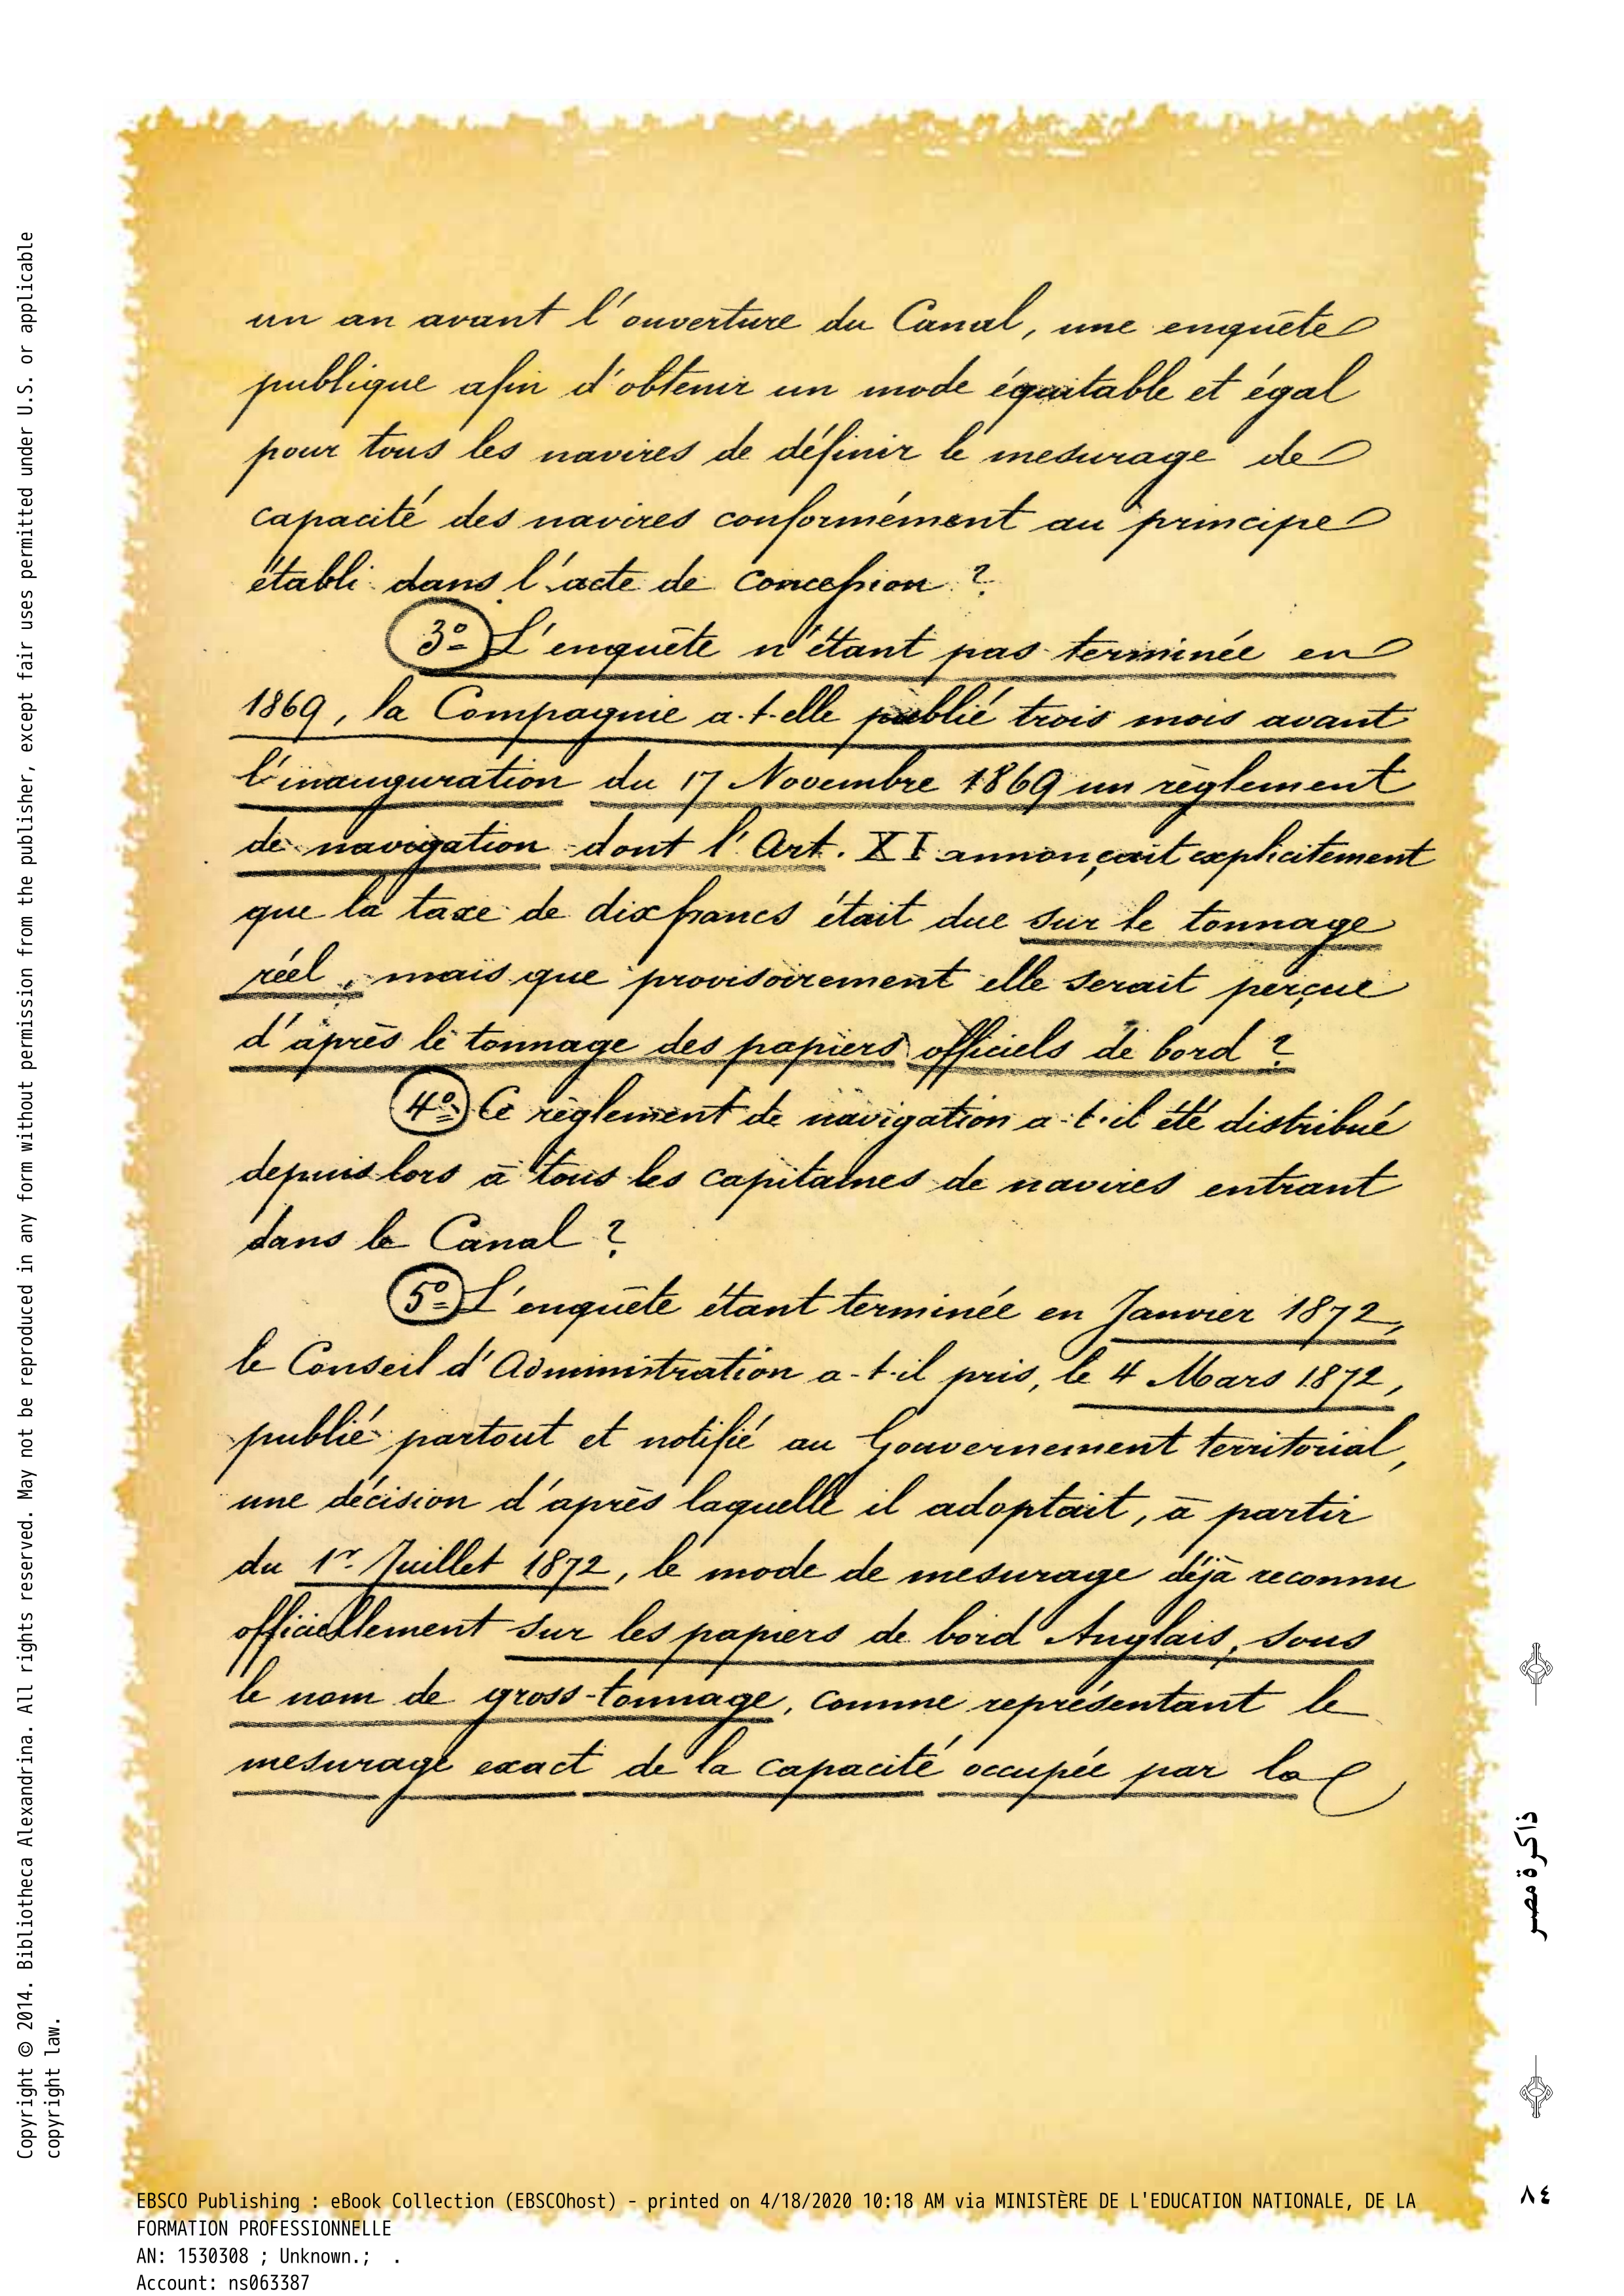 un an avant l'ouverture du Canal, une enquête
publique afin d'obtenir un mode équitable et égal
pour tous les navires de définir le mesurage de
capacité des navires conformément au principe
établi dans l'acte de concession ?
3º L'enquête n'étant pas terminée en
1869, la Compagnie a-t-elle publié trois mois avant
l'inauguration du 17 Novembre 1869 un règlement
de navigation dont l'Art. XI annonçait explicitement
que la taxe de dix francs était due sur le tonnage
réel, mais que provisoirement elle serait perçue
d'après le tonnage des papiers officiels de bord ?
4º Ce règlement de navigation a-t-il été distribué
depuis lors à tous les capitaines de navires entrant
dans le Canal ?
5º L'enquête étant terminée en Janvier 1872,
le Conseil d'Administration a-t-il pris, le 4 Mars 1872,
publié partout et notifié au Gouvernement territorial,
une décision d'après laquelle il adoptait, à partir
du 1r. Juillet 1872, le mode de mesurage déjà reconnu
officiellement sur les papiers de bord Anglais, sous
le nom de gross-tonnage, comme représentant le
mesurage exact de la capacité occupée par la
Copyright © 2014. Bibliotheca Alexandrina. All rights reserved. May not be reproduced in any form without permission from the publisher, except fair uses permitted under U.S. or applicable
copyright law.
ذاكرة مصر
٨٤
EBSCO Publishing : eBook Collection (EBSCOhost) - printed on 4/18/2020 10:18 AM via MINISTÈRE DE L'EDUCATION NATIONALE, DE LA
FORMATION PROFESSIONNELLE
AN: 1530308 ; Unknown.; .
Account: ns063387